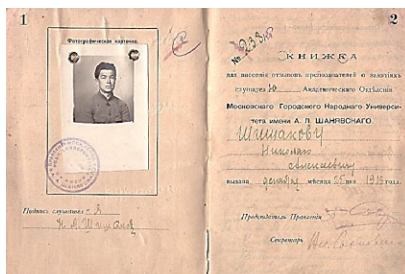 1
Фотографическая карточка.
Подпись слушател-я
Н. А. Шишаков
2
№ 233
КНИЖКА
для внесенія отзывовъ преподавателей о занятіяхъ
слушател ю Академическаго Отдѣленія
Московскаго Городского Народнаго Универси-
тета имени А. Л. ШАНЯВСКАГО.
Шишакову
Николаю
Алексеевичу
выдана декабря мѣсяца 25 дня 1915 года.
Предсѣдатель Правленія
Секретарь